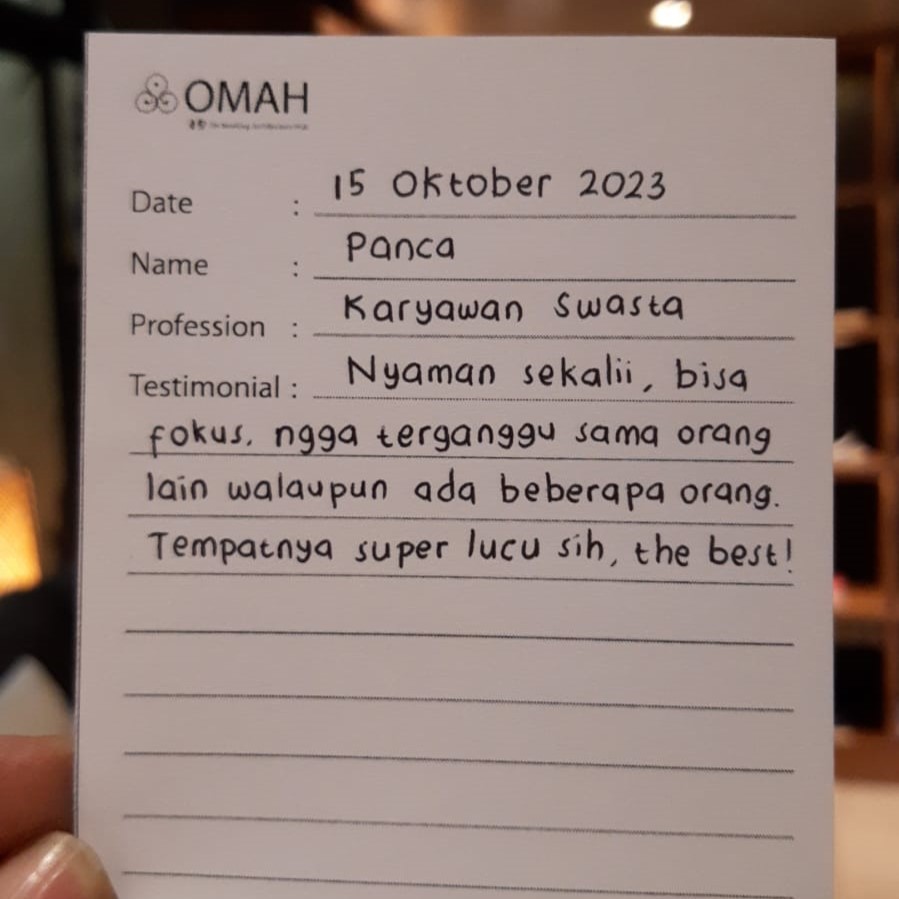 OMAH
Date : 15 Oktober 2023
Name : Panca
Profession : Karyawan Swasta
Testimonial : Nyaman sekalii, bisa
fokus. ngga terganggu sama orang
lain walaupun ada beberapa orang.
Tempatnya super lucu sih, the best!